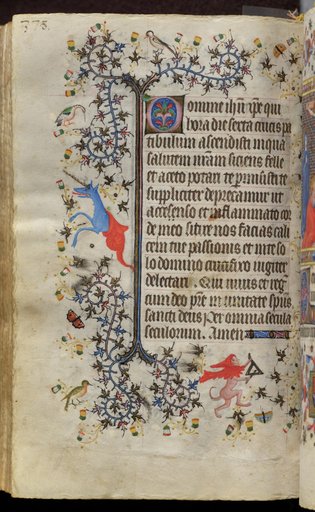 375.
Domine ihu xpe qui
hora die sexta crucis pa
tibulum ascendisti in qua
salutem nram sitiens felle
et aceto potari te permisisti te
suppliciter deprecamur ut
accenso et inflammato cor
de meo sitire nos facias cali
cem tue passionis et in te so
lo domino crucifixo iugiter
delectari. Qui uiuis et reg
cum deo pre in unitate spus
sancti deus Per omnia secula
seculorum. Amen